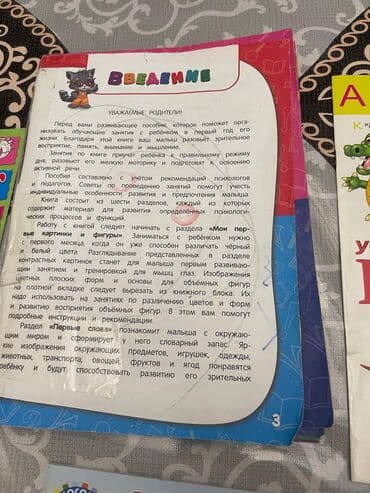 ВВЕДЕНИЕ
УВАЖАЕМЫЕ РОДИТЕЛИ!
Перед вами развивающее пособие, которое поможет орга-
низовать обучающие занятия с ребёнком в первый год его
жизни. Благодаря этой книге ваш малыш разовьёт зрительное
восприятие, память, внимание и мышление.
Занятия по книге приучат ребёнка к правильному режиму
дня, разовьют его мелкую моторику и подготовят к освоению
активной речи.
Пособие составлено с учётом рекомендаций психологов
и педагогов. Советы по проведению занятий помогут учесть
индивидуальные особенности развития и предпочтения малыша.
Книга состоит из шести разделов, каждый из которых
содержит материал для развития определённых психологи-
ческих процессов и функций.
Работу с книгой следует начинать с раздела «Мои пер-
вые картинки и фигуры». Заниматься с ребёнком нужно
с первого месяца, когда он уже способен различать чёрный
и белый цвета. Разглядывание представленных в разделе
контрастных картинок станет для малыша первым развиваю-
щим занятием и тренировкой для мышц глаз. Изображения
цветных плоских форм и основы для объёмных фигур
на плотной вкладке следует вырезать из книжного блока. Их
надо использовать на занятиях по различению цветов и форм
и развитию восприятия объёмных фигур. В этом вам помогут
подробные инструкции и рекомендации.
Раздел «Первые слова» познакомит малыша с окружаю-
щим миром и сформирует у него словарный запас. Яр-
кие изображения окружающих предметов, игрушек, одежды,
животных, транспорта, овощей, фруктов и ягод понравятся
ребёнку и будут способствовать развитию его зрительных
3
А
К